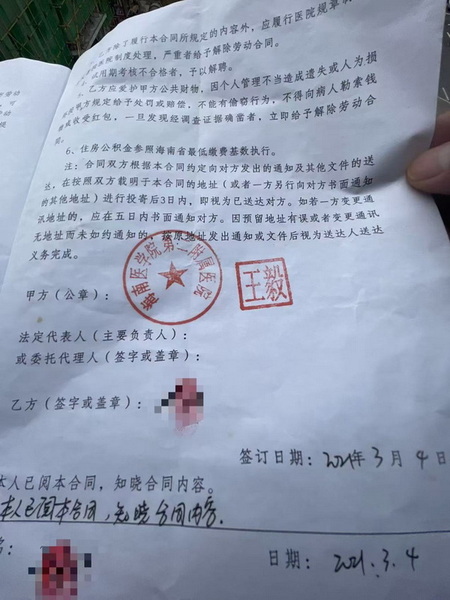 除了履行本合同所规定的内容外，应履行医院规章
制度处理，严重者给予解除劳动合同。
试用期考核不合格者，予以解聘。
乙方应爱护甲方公共财物，因个人管理不当造成遗失或人为损
甲方规定给予处罚或赔偿，不能有偷窃行为，不得向病人勒索钱
或收受红包，一旦发现经调查证据确凿者，立即给予解除劳动合
同。
6、住房公积金参照海南省最低缴费基数执行。
注：合同双方根据本合同约定向对方发出的通知及其他文件的送
达，在按照双方载明于本合同的地址（或者一方另行向对方书面通知
的其他地址）进行投寄后3日内，即视为已送达对方。如若一方变更通
讯地的，应在五日内书面通知对方。因预留地址有误或者变更通讯
无地址而未如约通知的，按原地址发出通知或文件后视为送达人送达
义务完成。
海南医学院第一附属医院
王毅
甲方（公章）：
法定代表人（主要负责人）：
或委托代理人（签字或盖章）：
乙方（签字或盖章）：
签订日期：2021年3月4日
本人已阅本合同，知晓合同内容。
本人已阅本合同，知晓合同内容.
名：
日期：2021.3.4